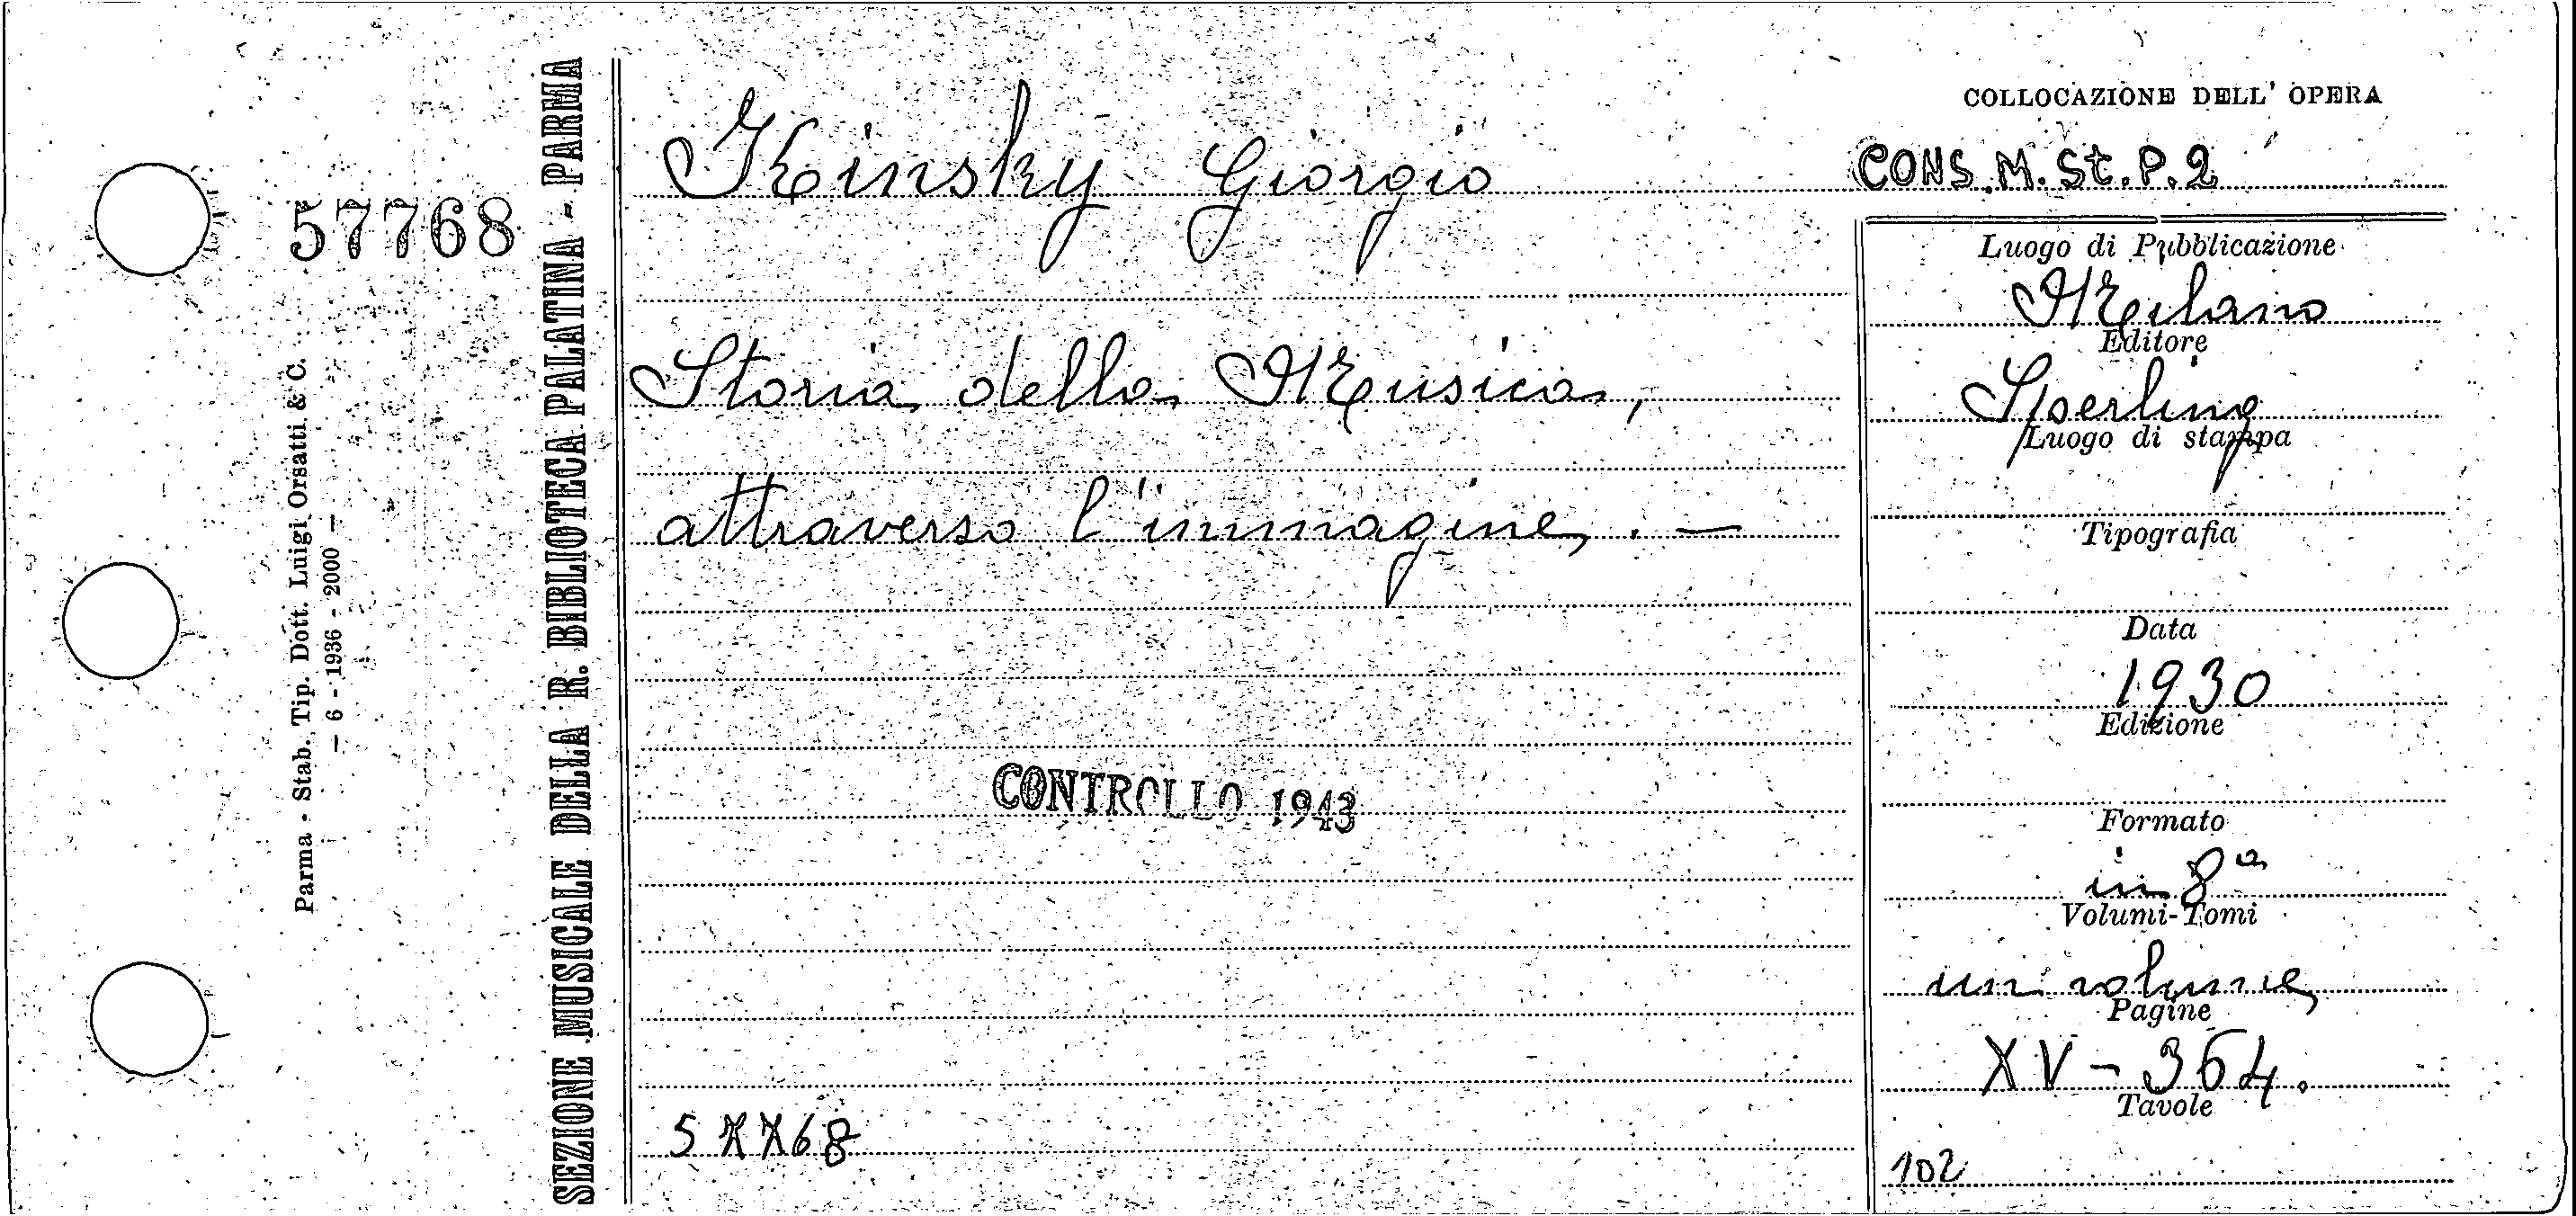 57768
Parma - Stab. Tip. Dott. Luigi Orsatti & C.
— 6 - 1936 - 2000 —
SEZIONE MUSICALE DELLA R. BIBLIOTECA PALATINA - PARMA
Kinsky Giorgio
Storia della Musica,
attraverso l'immagine. —
CONTROLLO 1943
57768
COLLOCAZIONE DELL' OPERA
CONS.M.St.P.2
Luogo di Pubblicazione
Milano
Editore
Sperling
Luogo di stampa
Tipografia
Data
1930
Edizione
Formato
in 8º
Volumi-Tomi
un volume
Pagine
XV - 364.
Tavole
102